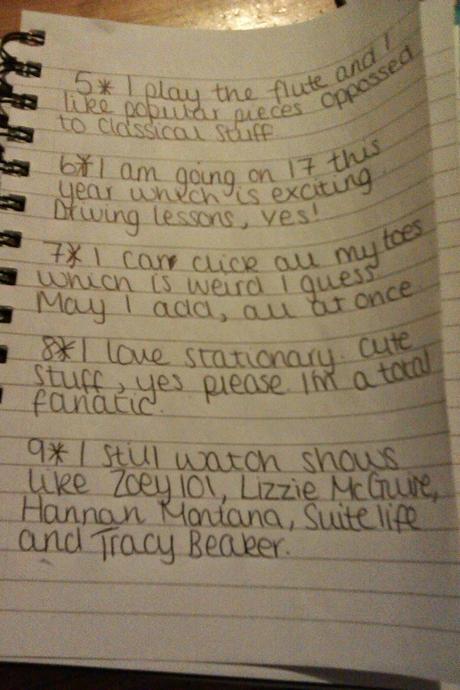 5* I play the flute and I
like popular pieces oppossed
to classical stuff
6* I am going on 17 this
year which is exciting
Driving lessons, yes!
7* I can click all my toes
which is weird I guess
May I add, all at once.
8* I love stationary. Cute
stuff, yes please I'm a total
fanatic.
9* I still watch shows
like Zoey 101, Lizzie McGuire,
Hannah Montana, Suite life
and Tracy Beaker.